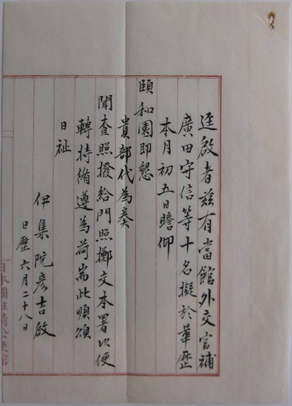 逕啟者茲有當館外交官補
廣田守信等十名擬於華歷
本月初五日瞻仰
頤和園即懇
貴部代為奏
聞查照撥給門照擲交本署以便
轉持循遵為荷耑此順頌
日祉
伊集院彥吉啟
日歷六月二十八日